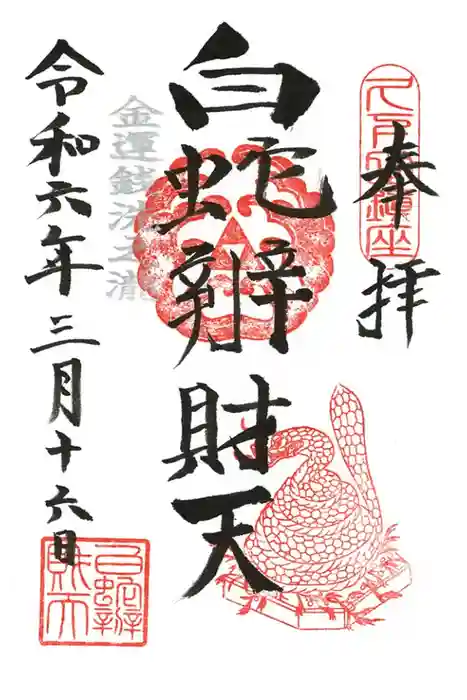 奉拝
白蛇辨財天
金運銭洗之滝
令和六年三月十六日
白蛇辨財天